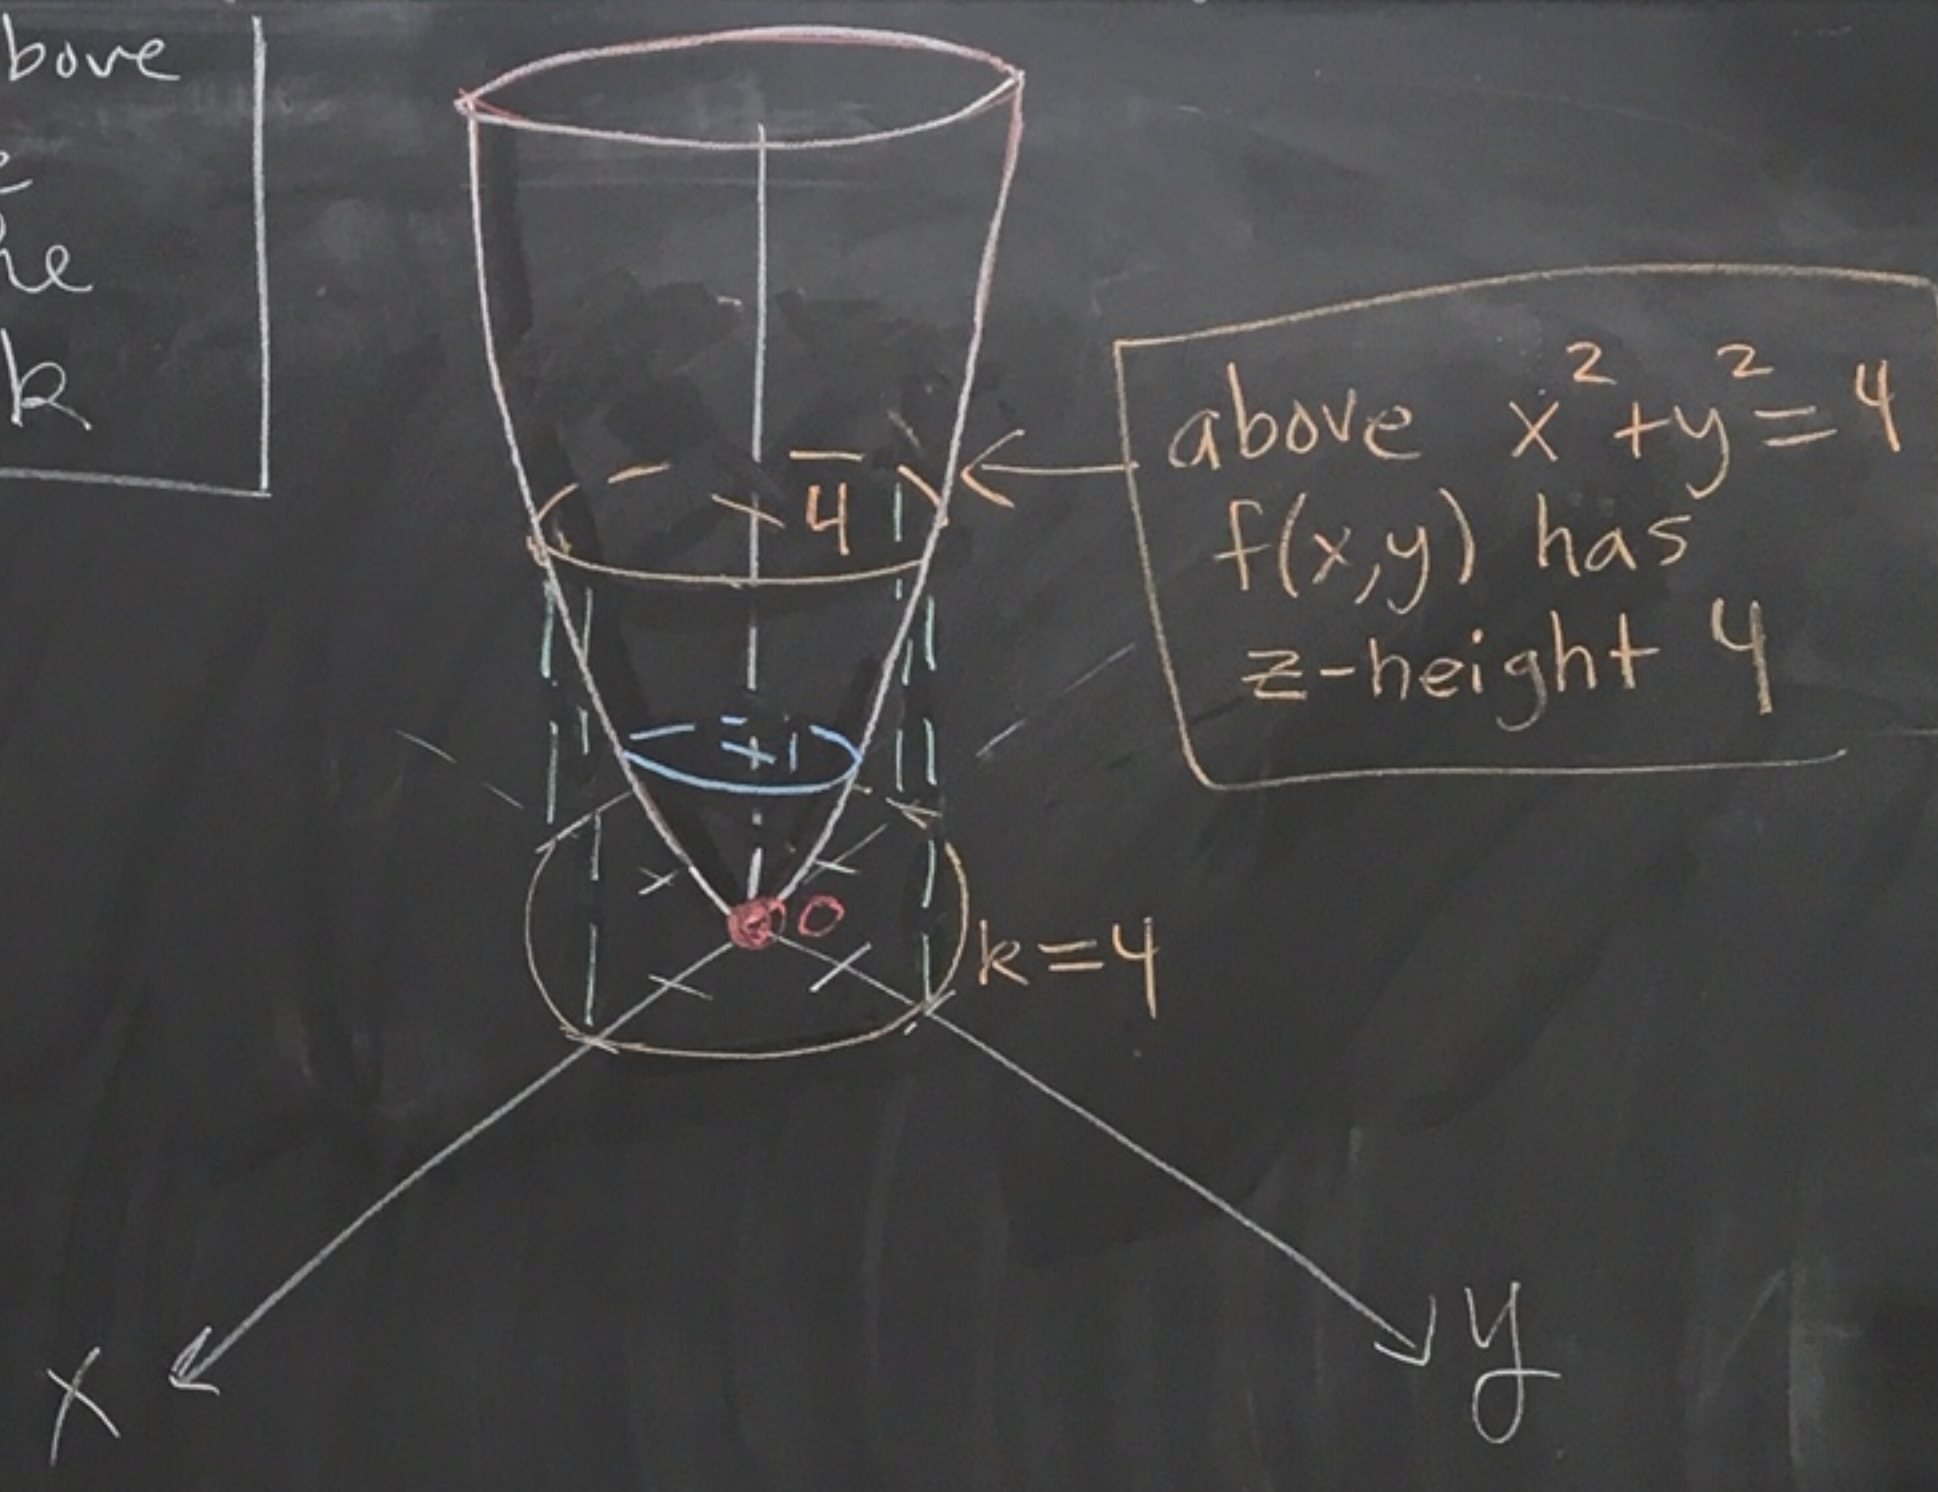 bove
he
k
above x² + y² = 4
f(x,y) has
z-height 4
4
1
0
k = 4
x
y